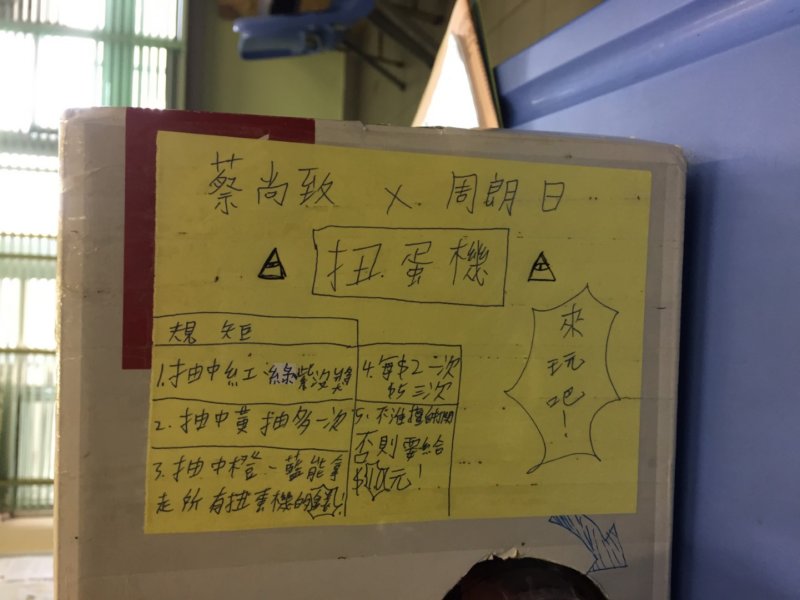 蔡尚致 X 周朗日
扭蛋機
來玩吧!
規矩
1.抽中紅 綠紫沒獎
2.抽中黃 抽多一次
3.抽中橙、藍能拿
走所有扭蛋機的!
4.每$2一次
$5三次
5.不准擅
否則要給
$10元!